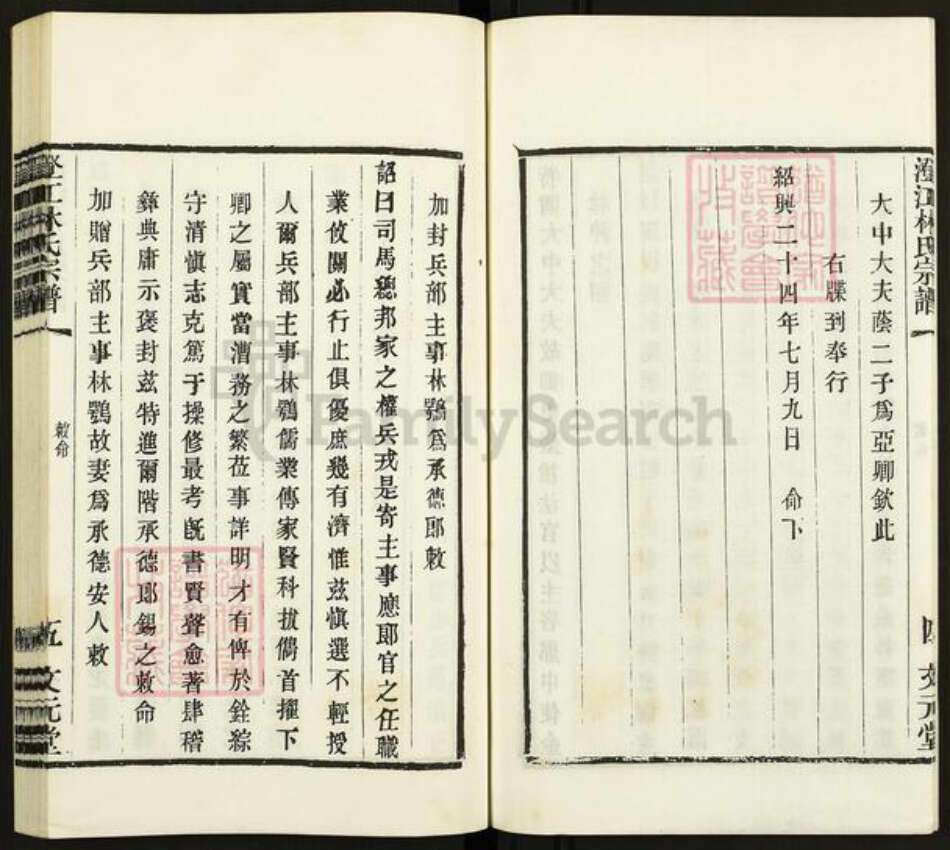 大中大夫蔭二子爲亞卿欽此
右牒到奉行
紹興二十四年七月九日　命下
林氏宗譜
文元堂
加封兵部主事林鶚爲承德郎敕
詔曰司馬總邦家之權兵戎是寄主事應郎官之任職
業攸關必行止俱優庶幾有濟惟茲愼選不輕授
人爾兵部主事林鶚儒業傳家賢科拔儁首擢下
卿之屬實當漕務之繁莅事詳明才有俾於銓綜
守清愼志克篤于操修最考旣書賢聲愈著肆稽
彝典庸示褒封茲特進爾階承德郎錫之敕命
加贈兵部主事林鶚故妻爲承德安人敕
江林氏宗譜
敕命
五
文元堂
FamilySearch